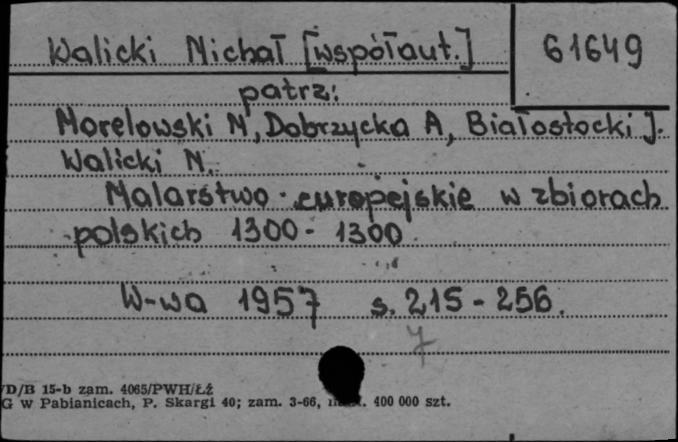 Walicki Michał [współaut.]
61649
patrz:
Morelowski M, Dobrzycka A, Białostocki J.
Walicki M.
Malarstwo europejskie w zbiorach
polskich 1300 - 1300
W-wa 1957 s. 215 - 256.
7
/D/B 15-b zam. 4065/PWH/ŁŹ
G w Pabianicach, P. Skargi 40; zam. 3-66, 400 000 szt.